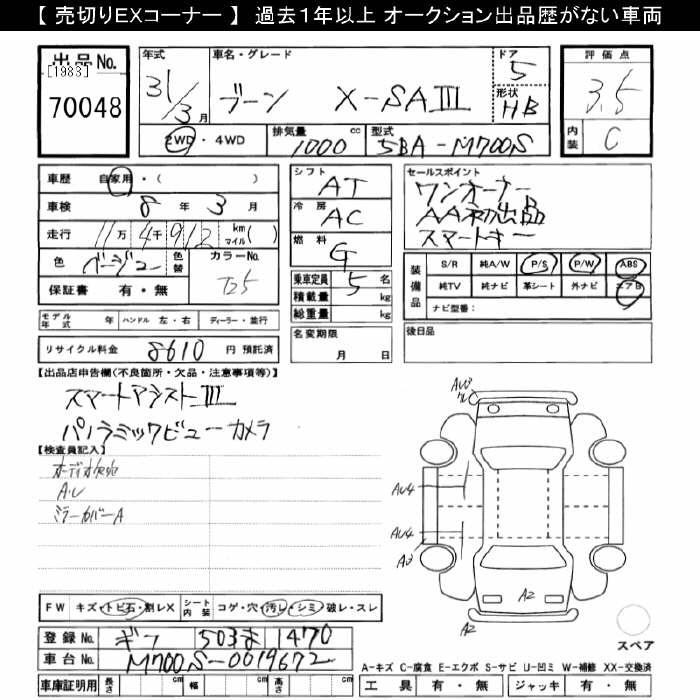 【 売切りEXコーナー 】 過去1年以上 オークション出品歴がない車両
出品No.
[1983]
70048
年式 31/3月
車名・グレード ブーン X-SAⅢ
ドア 5
形状 HB
評価点 3.5
内装 C
2WD・4WD
排気量 1000 cc
型式 5BA-M700S
車歴 自家用・( )
車検 8年3月
走行 11万4千912 km マイル( )
色 ベージュ 色替 カラーNo. T25
保証書 有・無
シフト AT
冷房 AC
燃料 G
乗車定員 5 名
積載量 kg
総重量 kg
セールスポイント
ワンオーナー
AA初出品
スマートキー
装備品 S/R 純A/W P/S P/W ABS
純TV 純ナビ 革シート 外ナビ エアB
ナビ型番:
モデル年式 年 ハンドル 左・右 ディーラー・並行
リサイクル料金 8610 円 預託済
名変期限 月 日
後日品
【出品店申告欄(不良箇所・欠品・注意事項等)】
スマートアシストⅢ
パノラミックビューカメラ
【検査員記入】
オーディオ欠品
A・U
ミラーカバーA
AU4
AU4
A2
A2
FW キズ・トビ石・割レX シート内装 コゲ・穴・汚レ・シミ・破レ・スレ
登録No. ギフ 503ま1470
車台No. M700S-0019672
スペア
A-キズ C-腐食 E-エクボ S-サビ U-凹ミ W-補修 XX-交換済
車庫証明用 長さ cm 幅 cm 高さ cm
工具 有・無 ジャッキ 有・無